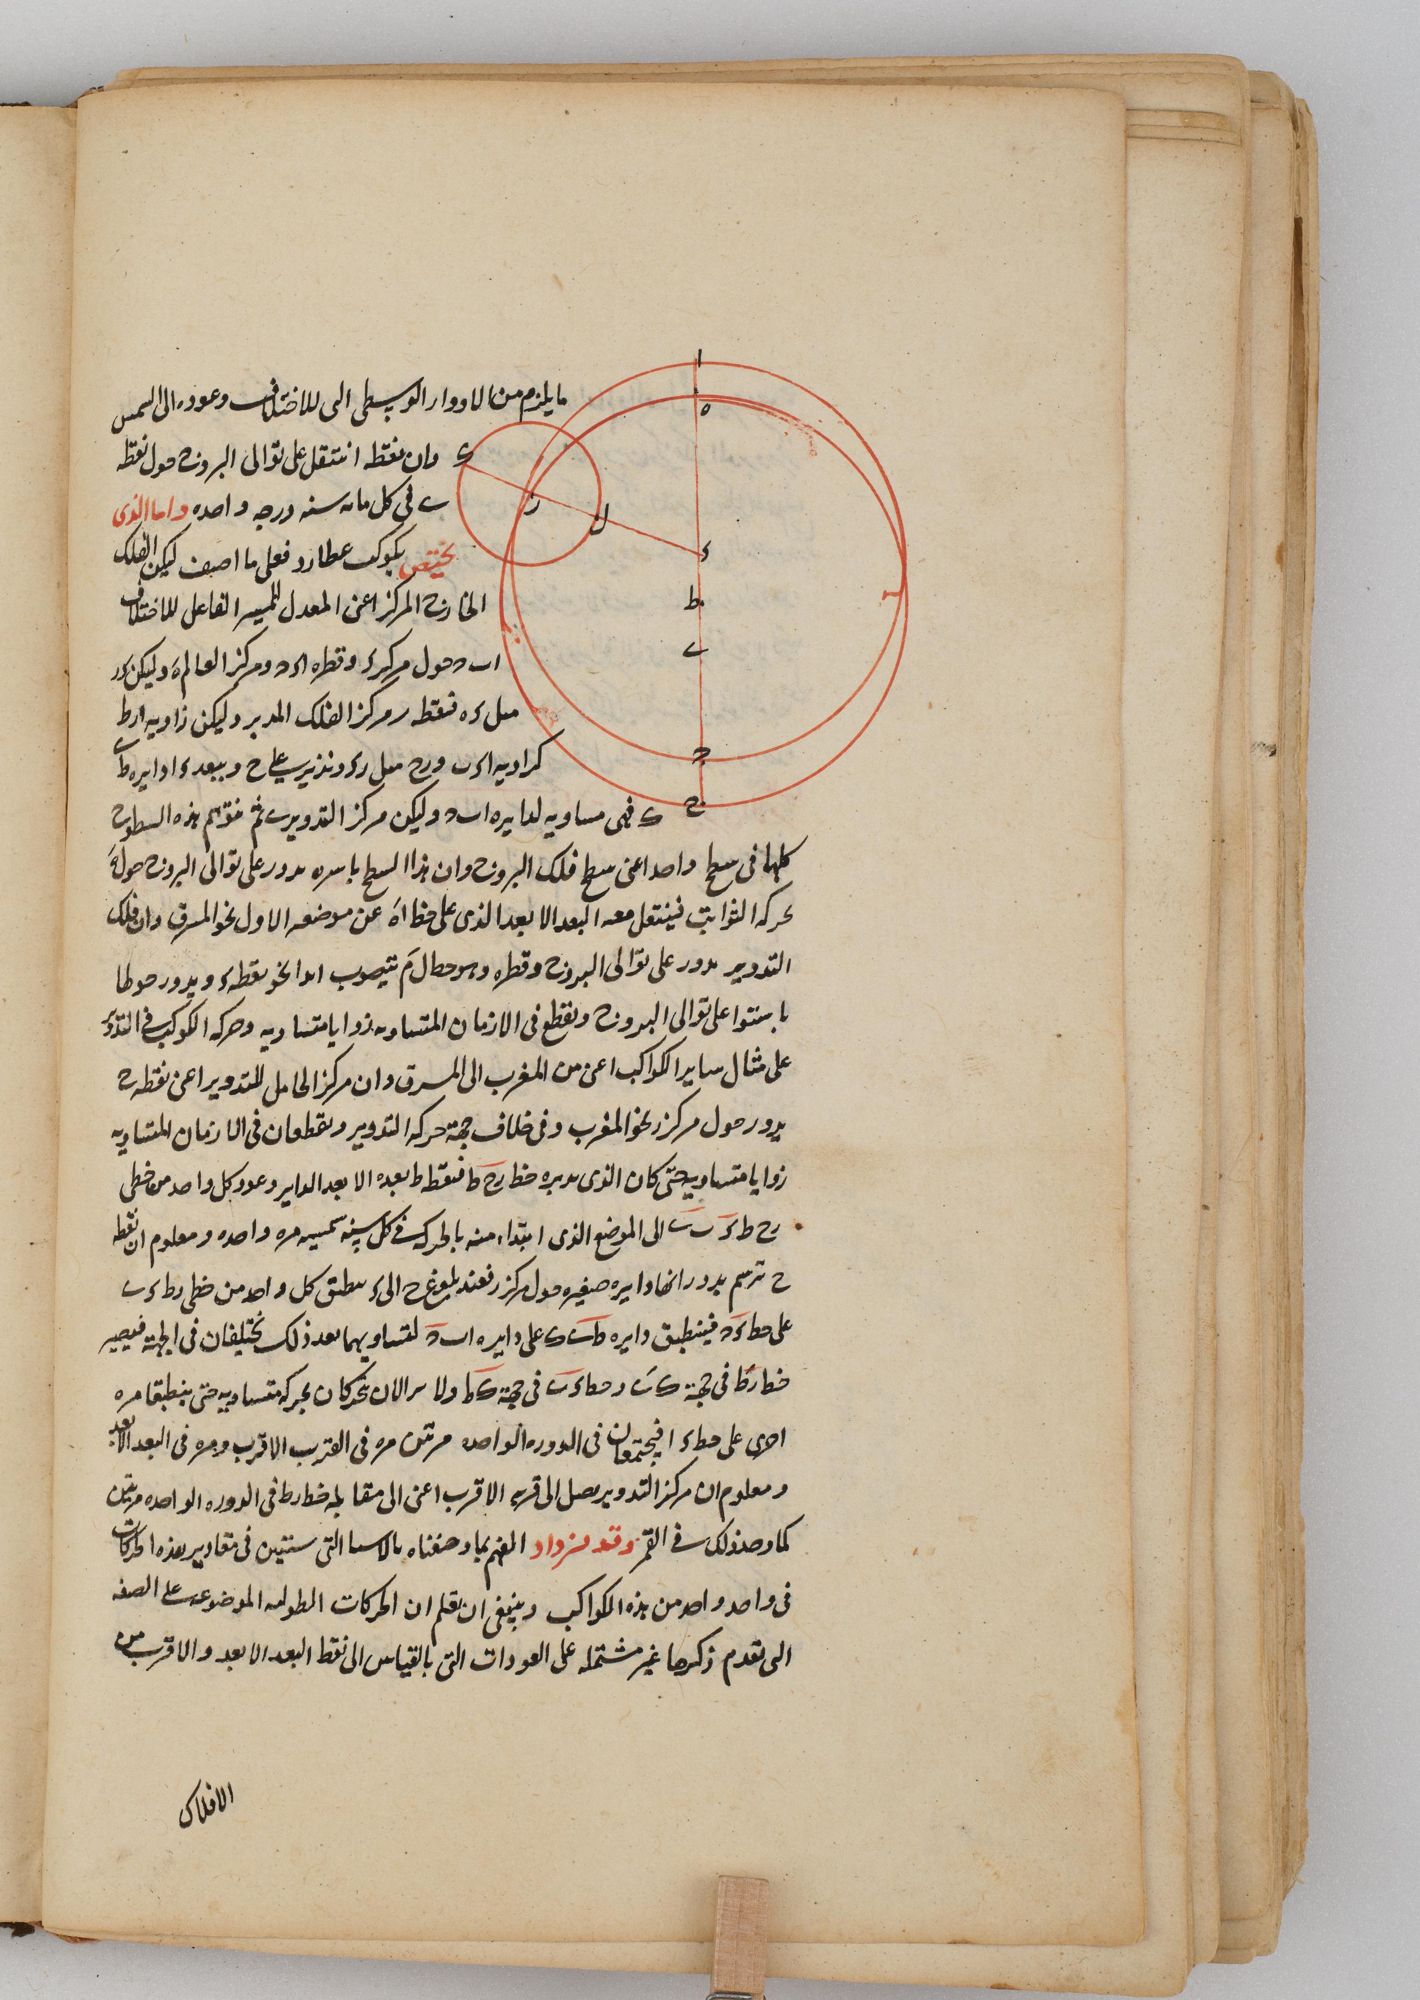 ا
ه
ء
ط
ى
ر
ل
ء
ح
ح
ما يلزم من الادوار الوسطى الى للاختلاف وعوده الى الشمس
وان نقطه ا تنتقل على توالى البروج حول نقطه
ى فى كل مائه سنه درجه واحده واما الذى
يختص بكوكب عطارد فعلى ما اصف ليكن الفلك
الخارج المركز اعنى المعدل للمسير الفاعل للاختلاف
اب ح حول مركز ء وقطره اء ح ومركز العالم ه وليكن ء ر
مثل ء ه فنقطه ر مركز الفلك المدير وليكن زاويه ا ر ط
كزاويه اء ى و ر ح مثل ر ء ونذير على ح وببعد ء ا دايره ط ى
ك فهى مساويه لدايره اب ح وليكن مركز التدوير ى ثم نتوهم هذه السطوح
كلها فى سطح واحد اعنى سطح فلك البروج وان هذا السطح باسره يدور على توالى البروج حول ه
بحركه الثوابت فينتقل معه البعد الابعد الذى على خط ا ه عن موضعه الاول نحو المشرق وان فلك
التدوير يدور على توالى البروج وقطره وهو خط ل م يتصوب ابدا نحو نقطه ء ويدور حولها
باستوا على توالى البروج ويقطع فى الازمان المتساويه زوايا متساويه وحركه الكوكب فى التدوير
على مثال ساير الكواكب اعنى من المغرب الى المشرق وان مركز الحامل للتدوير اعنى نقطه ح
يدور حول مركز ر نحو المغرب وفى خلاف جهة حركه التدوير ويقطعان فى الازمان المتساويه
زوايا متساويه حتى كان الذى يديره خط ر ح ط فنقطه ط بعده الابعد الداير وعود كل واحد من خطى
ر ح ط ء ى الى الموضع الذى ابتداء منه بالحركه فى كل سنه شمسيه مره واحده ومعلوم ان نقطه
ح ترسم بدورانها دايره صغيره حول مركز ر فعند بلوغ ح الى ء ينطبق كل واحد من خطى ر ط ء ى
على خط ء ح فينطبق دايره ط ى ك على دايره اب ح لتساويهما بعد ذلك يختلفان فى الجهة فيصير
خط ر ط فى جهة ك ى وخط ء ى فى جهة ك ط ولا يزالان يتحركان بحركه متساويه حتى ينطبقا مره
اخرى على خط ء ا فيجتمعان فى الدوره الواحده مرتين مره فى القرب الاقرب ومره فى البعد الابعد
ومعلوم ان مركز التدوير يصل الى قربه الاقرب اعنى الى مقابله خط ر ط فى الدوره الواحده مرتين
كما وجد ذلك فى القمر وقد يزداد الفهم بما وصفناه بالاشيا التى ستتبين فى مقادير هذه الحركات
فى واحد واحد من هذه الكواكب وينبغى ان تعلم ان الحركات الطوليه الموضوعه على الصفه
التى تقدم ذكرها غير مشتمله على العودات التى بالقياس الى نقط البعد الابعد والاقرب من
الافلاك